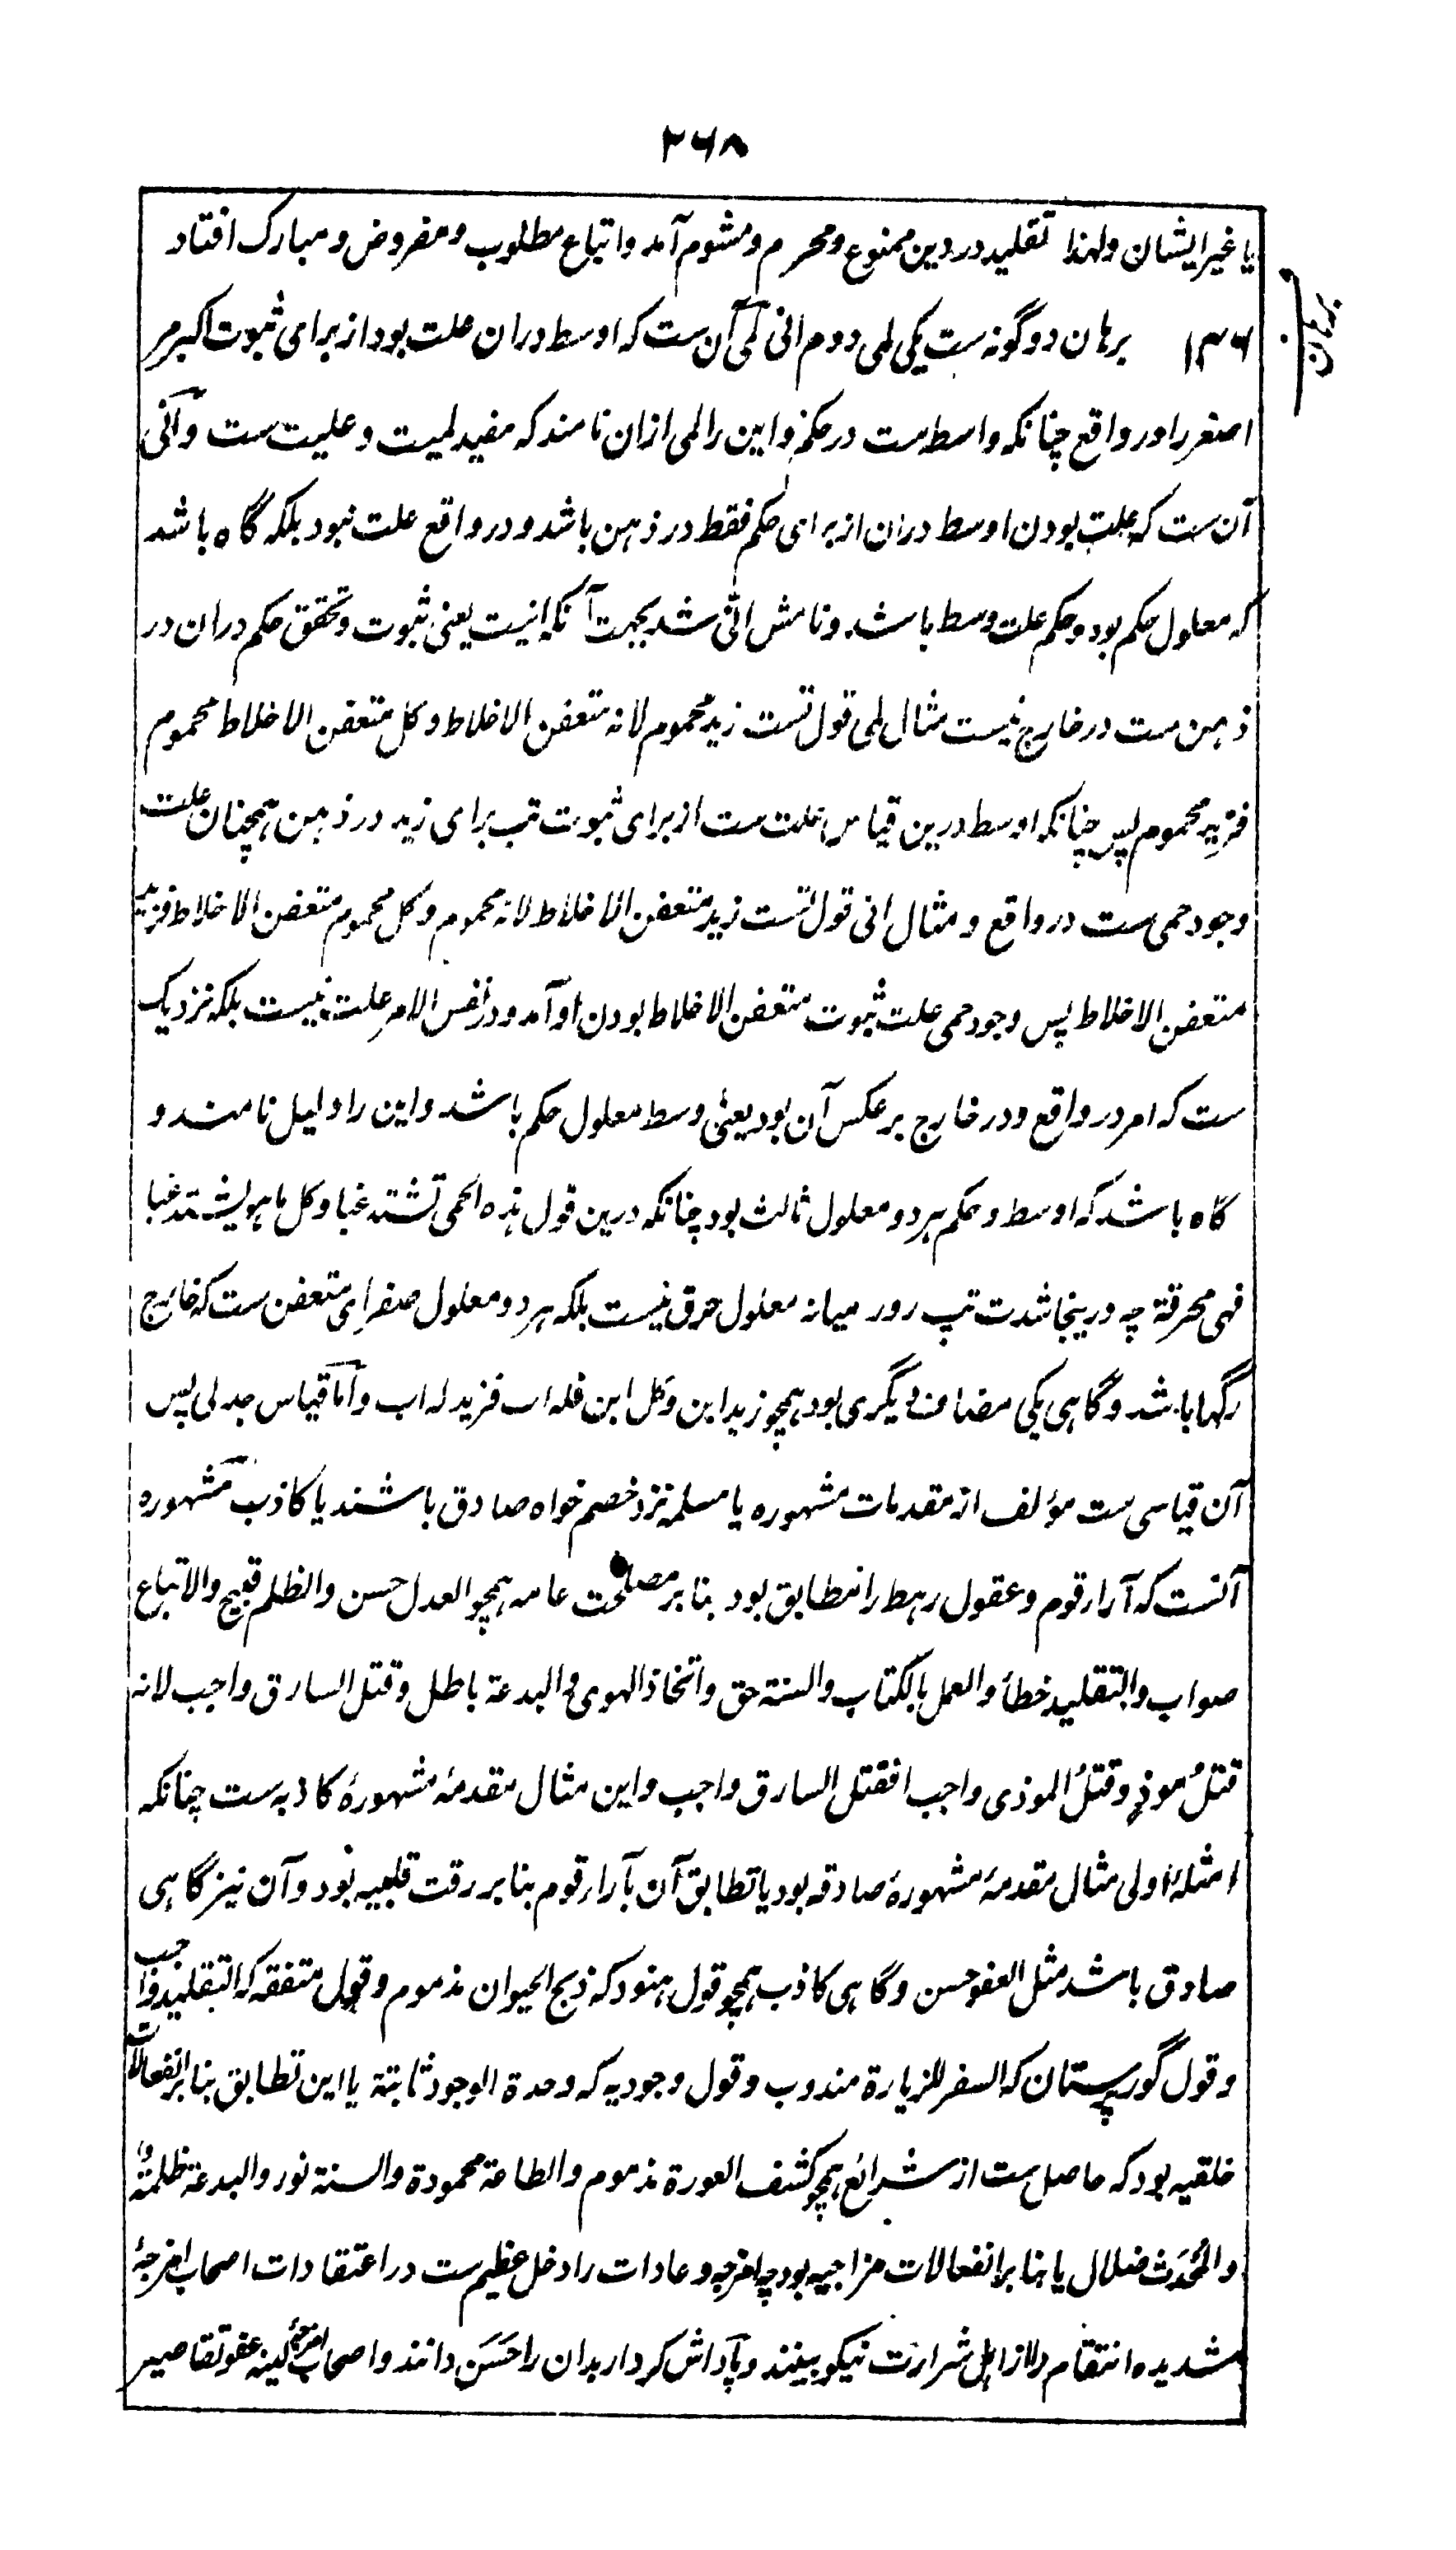 ۲۶۸
یا غیر ایشان ولهذا تقلید در دین ممنوع و محرم و مشوم آمد و اتباع مطلوب و مفروض و مبارک افتاد
برهان
۱۳۶ برهان دو گونه ست یکی لمی دوم انی لمی آن ست که اوسط دران علت بود از برای ثبوت اکبر مر
اصغر را در واقع چنانکه واسطه ست در حکم و این را لمی ازان نامند که مفید لمیت و علیت ست و انی
آن ست که علت بودن اوسط دران از برای حکم فقط در ذهن باشد و در واقع علت نبود بلکه گاه باشد
که معلول حکم بود و حکم علت وسط باشد و نامش انی شد بجهت آنکه انیت یعنی ثبوت و تحقق حکم دران در
ذهن ست در خارج نیست مثال لمی قول تست زید محموم لانه متعفن الاخلاط و کل متعفن الاخلاط محموم
فزید محموم پس چنانکه اوسط درین قیاس علت ست از برای ثبوت تب برای زید در ذهن همچنان علت
وجود حمی ست در واقع و مثال انی قول تست زید متعفن الاخلاط لانه محموم و کل محموم متعفن الاخلاط فزید
متعفن الاخلاط پس وجود حمی علت ثبوت متعفن الاخلاط بودن او آمد و در نفس الامر علت نیست بلکه نزدیک
ست که امر در واقع و در خارج بر عکس آن بود یعنی وسط معلول حکم باشد و این را دلیل نامند و
گاه باشد که اوسط و حکم هر دو معلول ثالث بود چنانکه درین قول هذه الحمی تشتد غبا و کل ما هو یشتد غبا
فهی محرقة چه درینجا شدت تپ روز میانه معلول حرق نیست بلکه هر دو معلول صفرای متعفن ست که خارج
رگها باشد و گاهی یکی مضاف دیگری بود همچو زید ابن و کل ابن فله اب فزید له اب و اما قیاس جدلی پس
آن قیاسی ست مؤلف از مقدمات مشهوره یا مسلمه نزد خصم خواه صادق باشند یا کاذب مشهوره
آنست که آرار قوم و عقول رهط را مطابق بود بنا بر مصلحت عامه همچو العدل حسن والظلم قبیح والاتباع
صواب والتقلید خطأ والعمل بالکتاب والسنة حق واتخاذ الهوی والبدعة باطل وقتل السارق واجب لانه
قتل موذٍ وقتلُ الموذی واجب فقتل السارق واجب و این مثال مقدمهٔ مشهورهٔ کاذبه ست چنانکه
امثلهٔ اولی مثال مقدمهٔ مشهورهٔ صادقه بود یا تطابق آن بآرار قوم بنا بر رقت قلبیه بود و آن نیز گاهی
صادق باشد مثل العفو حسن و گاهی کاذب همچو قول هنود که ذبح الحیوان مذموم و قول متفقه که التقلید واجب
و قول گورپرستان که السفر للزیارة مندوب و قول وجودیه که وحدة الوجود ثابتة یا این تطابق بنا بر انفعالات
خلقیه بود که حاصل ست از شرائع همچو کشف العورة مذموم والطاعة محمودة والسنة نور والبدعة ظلمة
والمُحدَث ضلال یا بنا بر انفعالات مزاجیه بود چه امزجه و عادات را دخل عظیم ست در اعتقادات اصحاب امزجهٔ
شدیده انتقام را از اهل شرارت نیکو بینند و پاداش کردار بدان را حَسَن دانند و اصحاب امزجهٔ لینه عفو تقاصیر